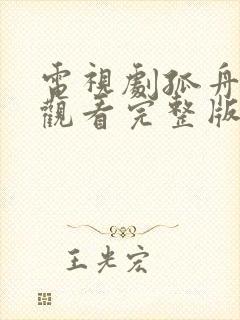 電視劇孤舟
觀看完整版
王光宏